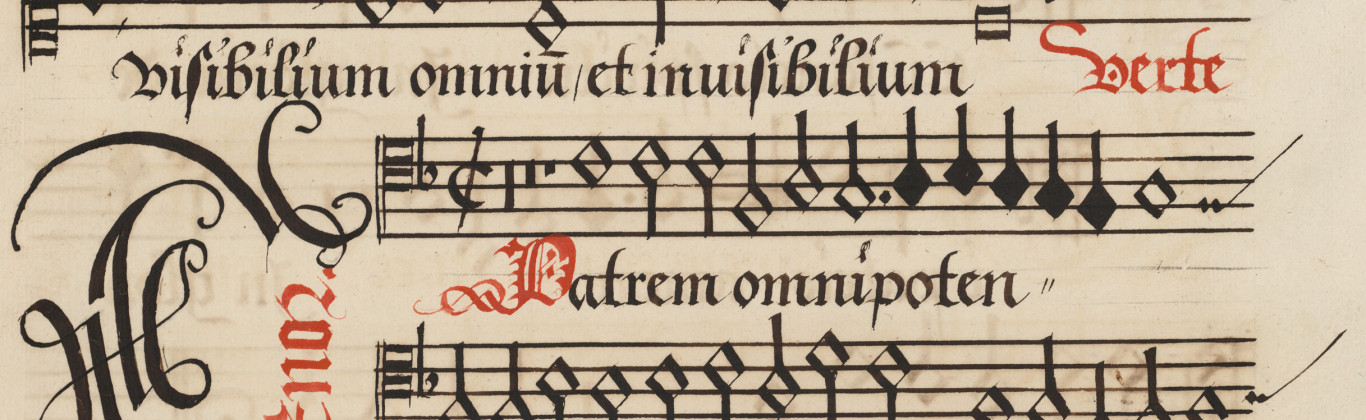 Visibilium omniū / et inuisibilium Verte
Patrem omnipoten〃